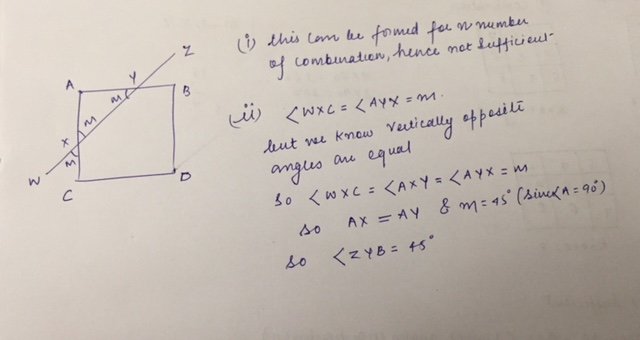 (i) this can be formed for n number
of combination, hence not sufficient
(ii) <WXC = <AYX = m.
but we know vertically opposite
angles are equal
so <WXC = <AXY = <AYX = m
so AX = AY & m = 45° (since <A = 90°)
so <ZYB = 45°
Z
A
Y
B
m
m
X
m
W
C
D